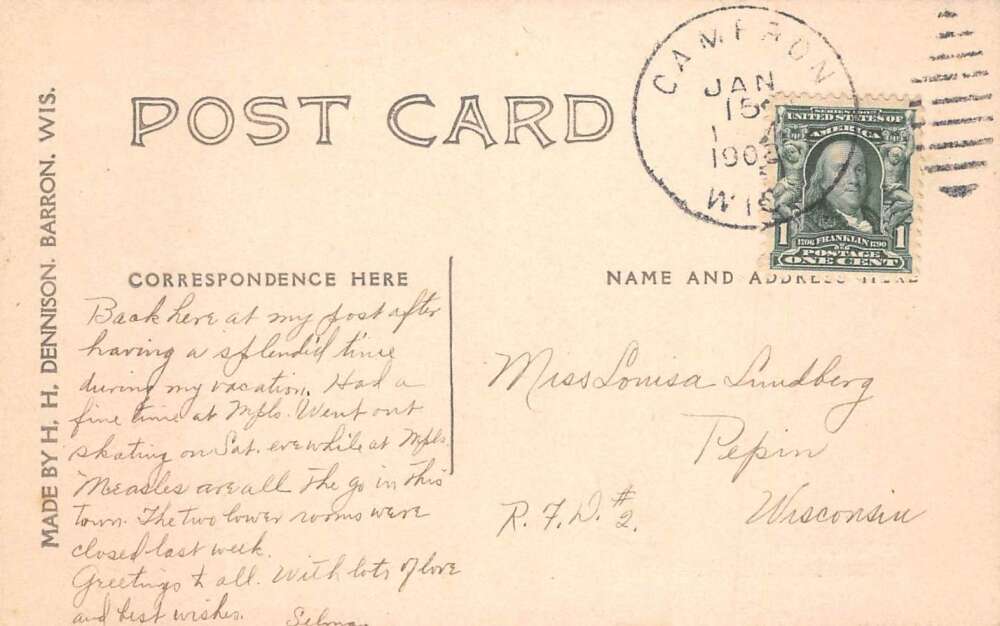 CAMERON
JAN
15
1908
WIS
SERIES 1902
UNITED STATES OF
AMERICA
1 1706 FRANKLIN 1790 1
POSTAGE
ONE CENT
POST CARD
MADE BY H. H. DENNISON. BARRON. WIS.
CORRESPONDENCE HERE
NAME AND ADDRESS HERE
Back here at my post after
having a splendid time
during my vacation. Had a
fine time at Mpls. Went out
skating on Sat. eve while at Mpls.
Measles are all the go in this
town. The two lower rooms were
closed last week.
Greetings to all. With lots of love
and best wishes. Selma
Miss Louisa Lundberg
Pepin
R. F. D. #2. Wisconsin